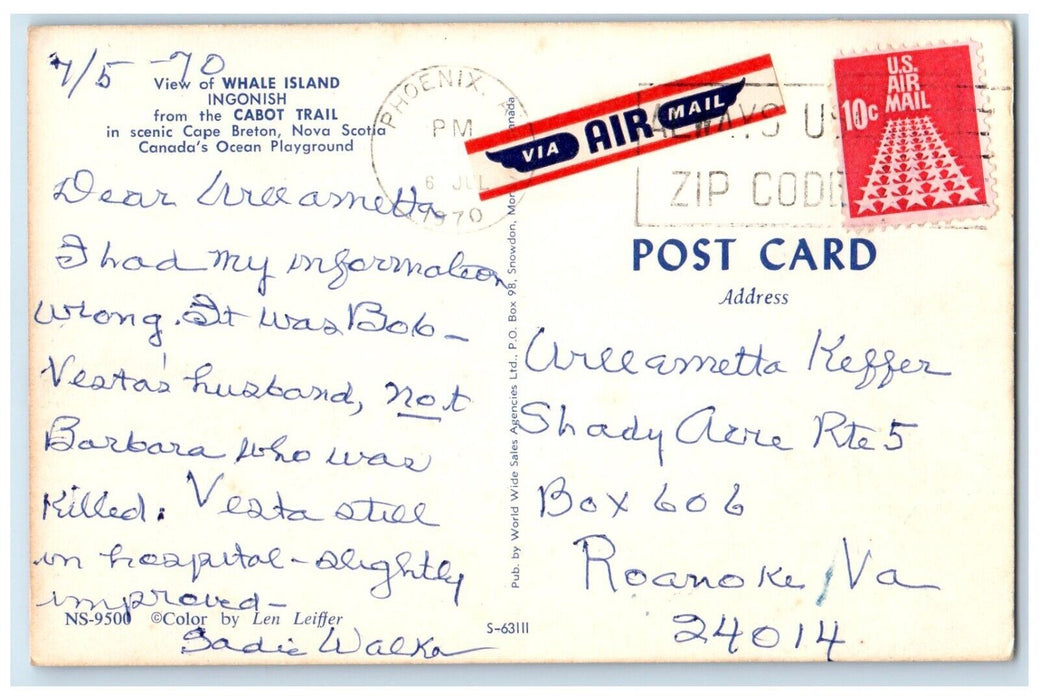 7/5-70
View of WHALE ISLAND
INGONISH
from the CABOT TRAIL
in scenic Cape Breton, Nova Scotia
Canada's Ocean Playground
Dear Willametta
I had my information
wrong. It was Bob-
Vesta's husband, not
Barbara who was
killed. Vesta still
in hospital - slightly
improved-
NS-9500 ©Color by Len Leiffer
Sadie Walker
Pub. by World Wide Sales Agencies Ltd., P.O. Box 98, Snowdon,
S-63111
PHOENIX,
PM
6 JUL
1970
VIA AIR MAIL
ALWAYS U
ZIP CODE
U.S.
AIR
MAIL
10c
POST CARD
Address
Willametta Keffer
Shady Acre Rte 5
Box 606
Roanoke, Va
24014